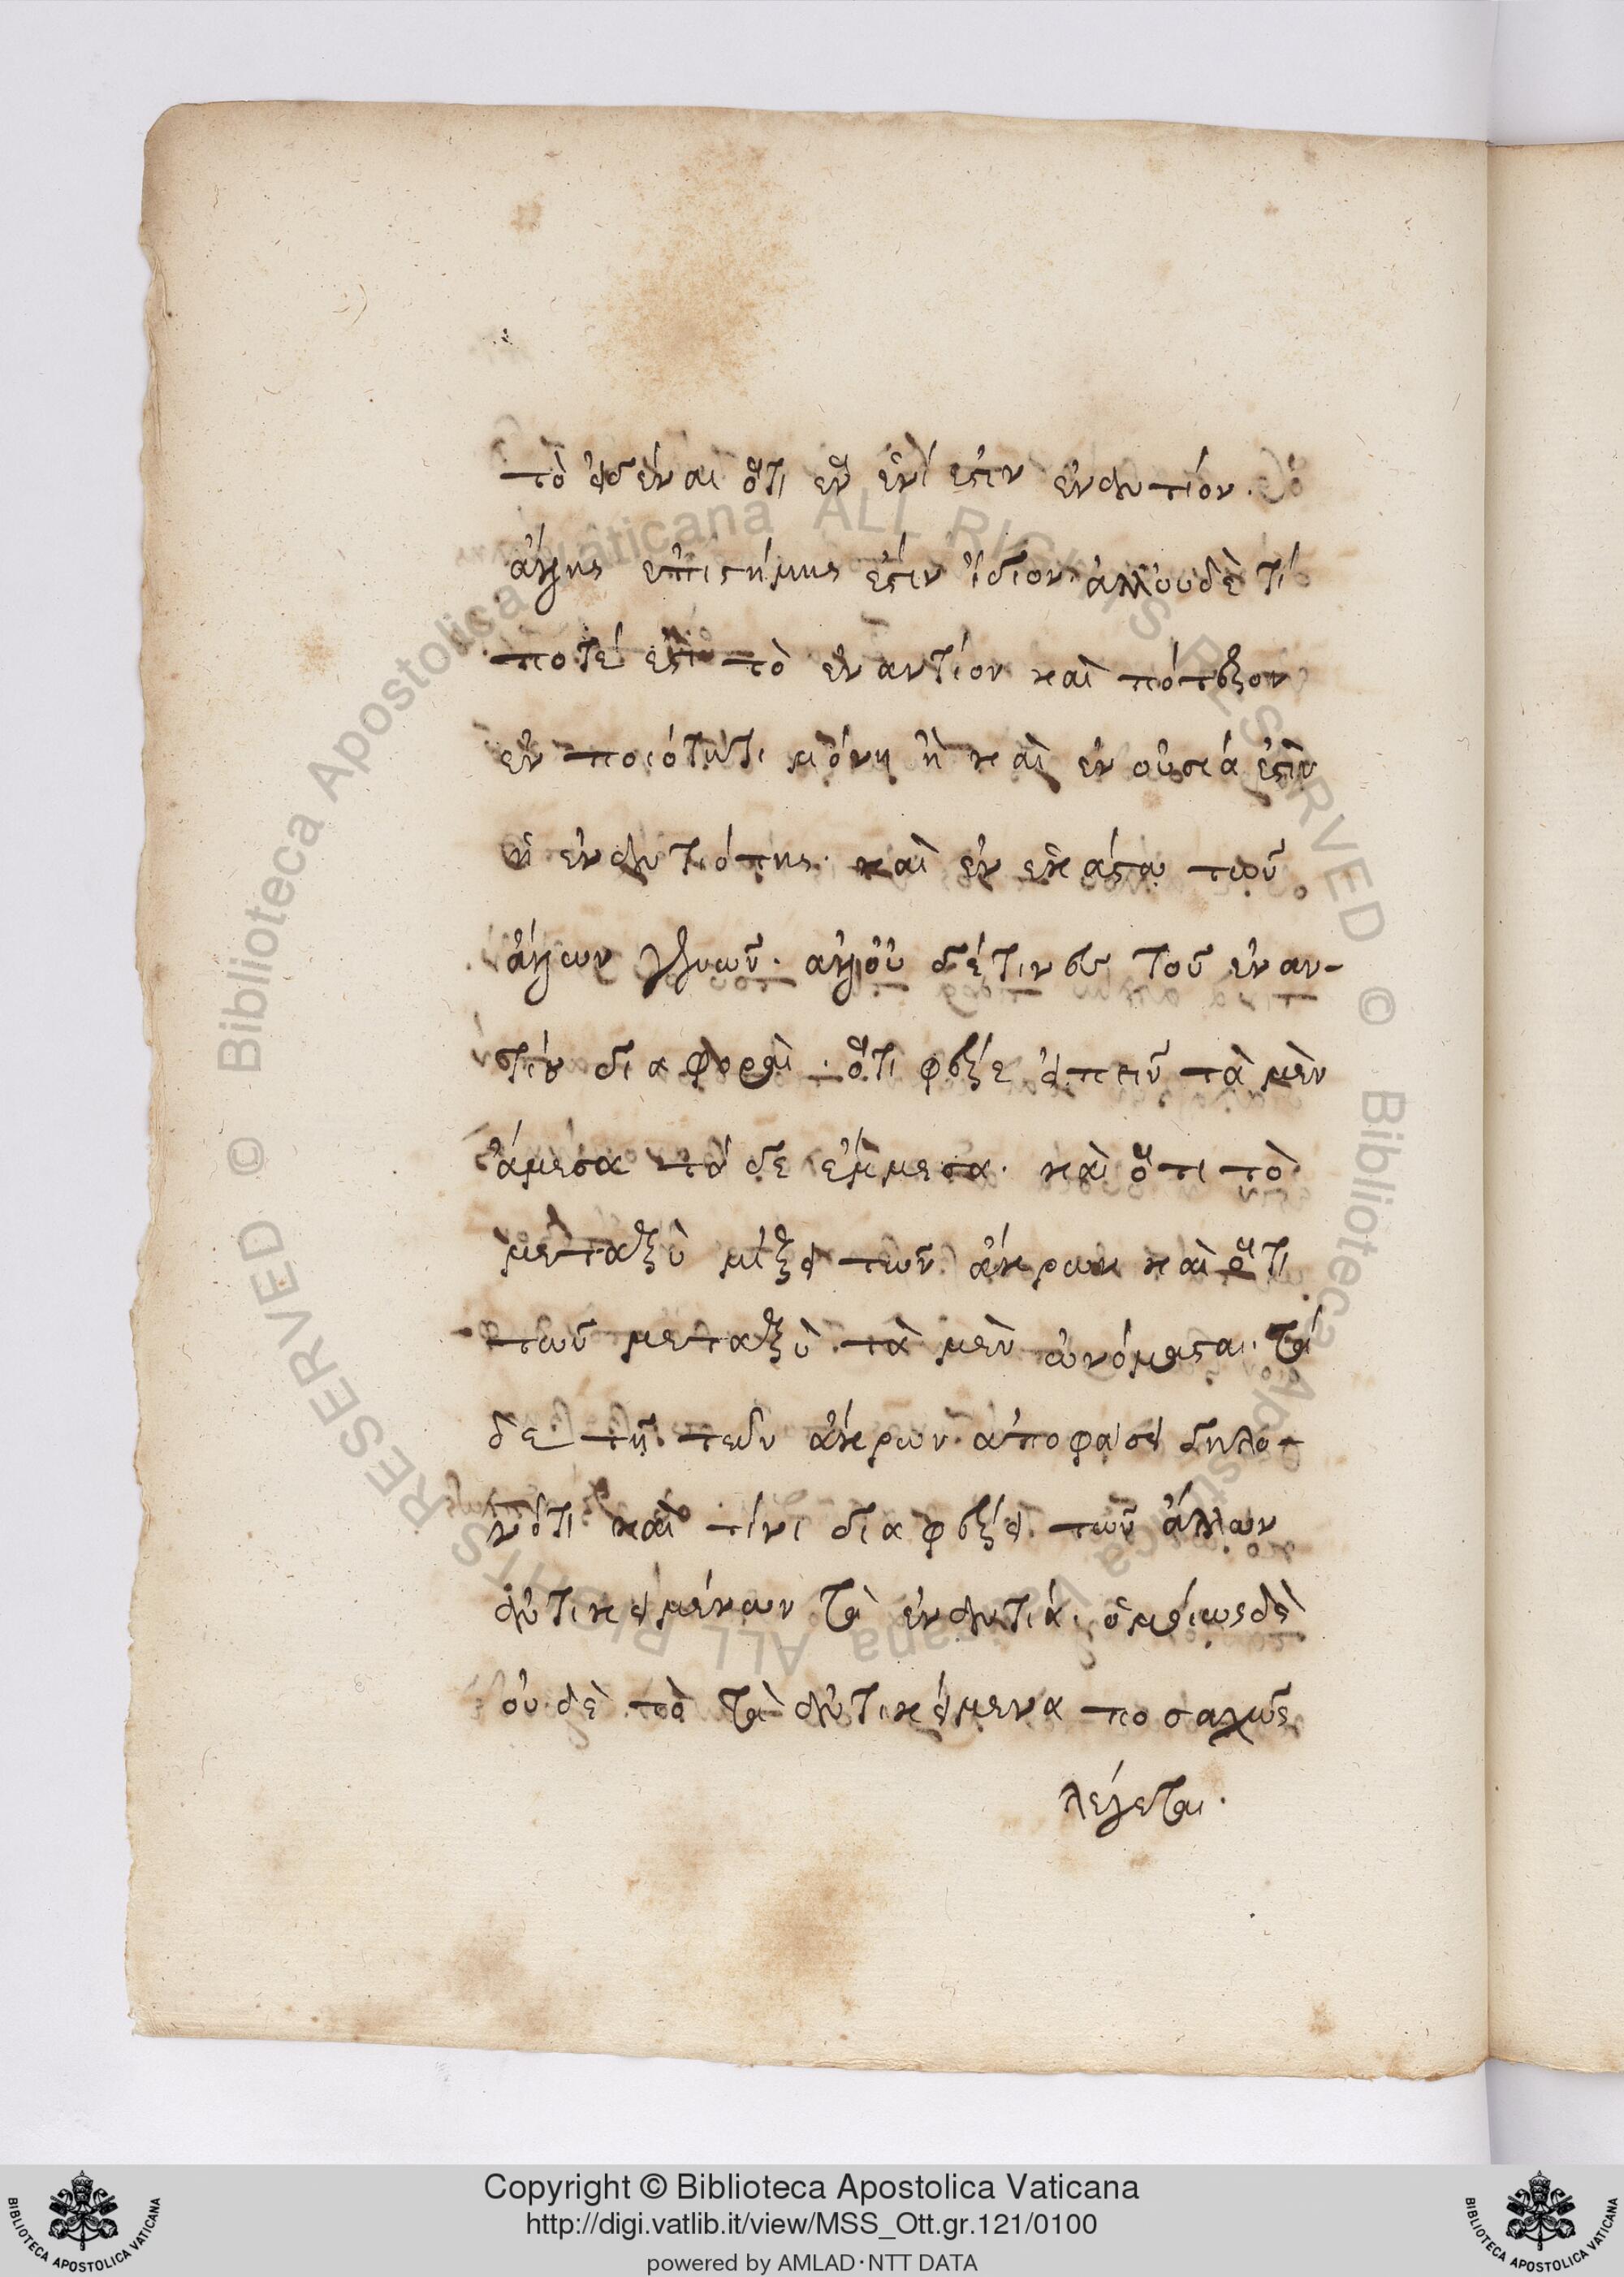 τὸ εἰδέναι ὅτι ἓν ἑνί ἐστιν ἐναντίον.
ἄλλης ἐπιστήμης ἐστιν ἴδιον. ἀλλ' οὐδὲ τί
ποτέ ἐστι τὸ ἐναντίον καὶ πότερον
ἐν ποιότητι μόνη ἢ καὶ ἐν οὐσία ἐστὶν
ἡ ἐναντιότης. καὶ ἐν ἑκάστω τῶν
ἄλλων γενῶν. ἀλλ' οὐ τοῦ ἐναν-
τίου διαφοραὶ. ὅτι φέρε εἰπεῖν τὰ μὲν
ἄμεσα τὰ δε ἔμμεσα. καὶ ὅτι τὸ
μεταξὺ μίξει τῶν ἄκρων καὶ ὅτι
τῶν μεταξὺ τὰ μὲν ὠνόμασται. τὰ
δε τῆ τῶν ἄκρων ἀποφάσει δηλο-
νότι καὶ τίνι διαφέρει τῶν ἄλλων
ἀντικειμένων τὰ ἐναντία. ὁμοίως δὲ
οὐδὲ τὸ τὰ ἀντικείμενα ποσαχῶς
λέγεται.
Copyright © Biblioteca Apostolica Vaticana
http://digi.vatlib.it/view/MSS_Ott.gr.121/0100
powered by AMLAD·NTT DATA
BIBLIOTECA APOSTOLICA VATICANA
BIBLIOTECA APOSTOLICA VATICANA
© Biblioteca Apostolica Vaticana ALL RIGHTS RESERVED
© Biblioteca Apostolica Vaticana ALL RIGHTS RESERVED